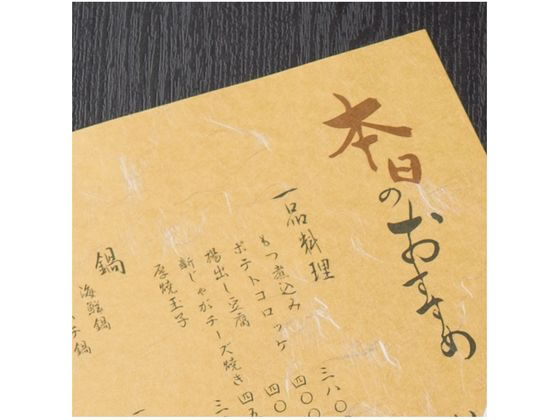 本日のおすすめ
一品料理
もつ煮込み 三八〇
ポテトコロッケ 四〇〇
揚出し豆腐 四〇
新じゃがチーズ焼き 四五
厚焼玉子 三
鍋
海鮮鍋